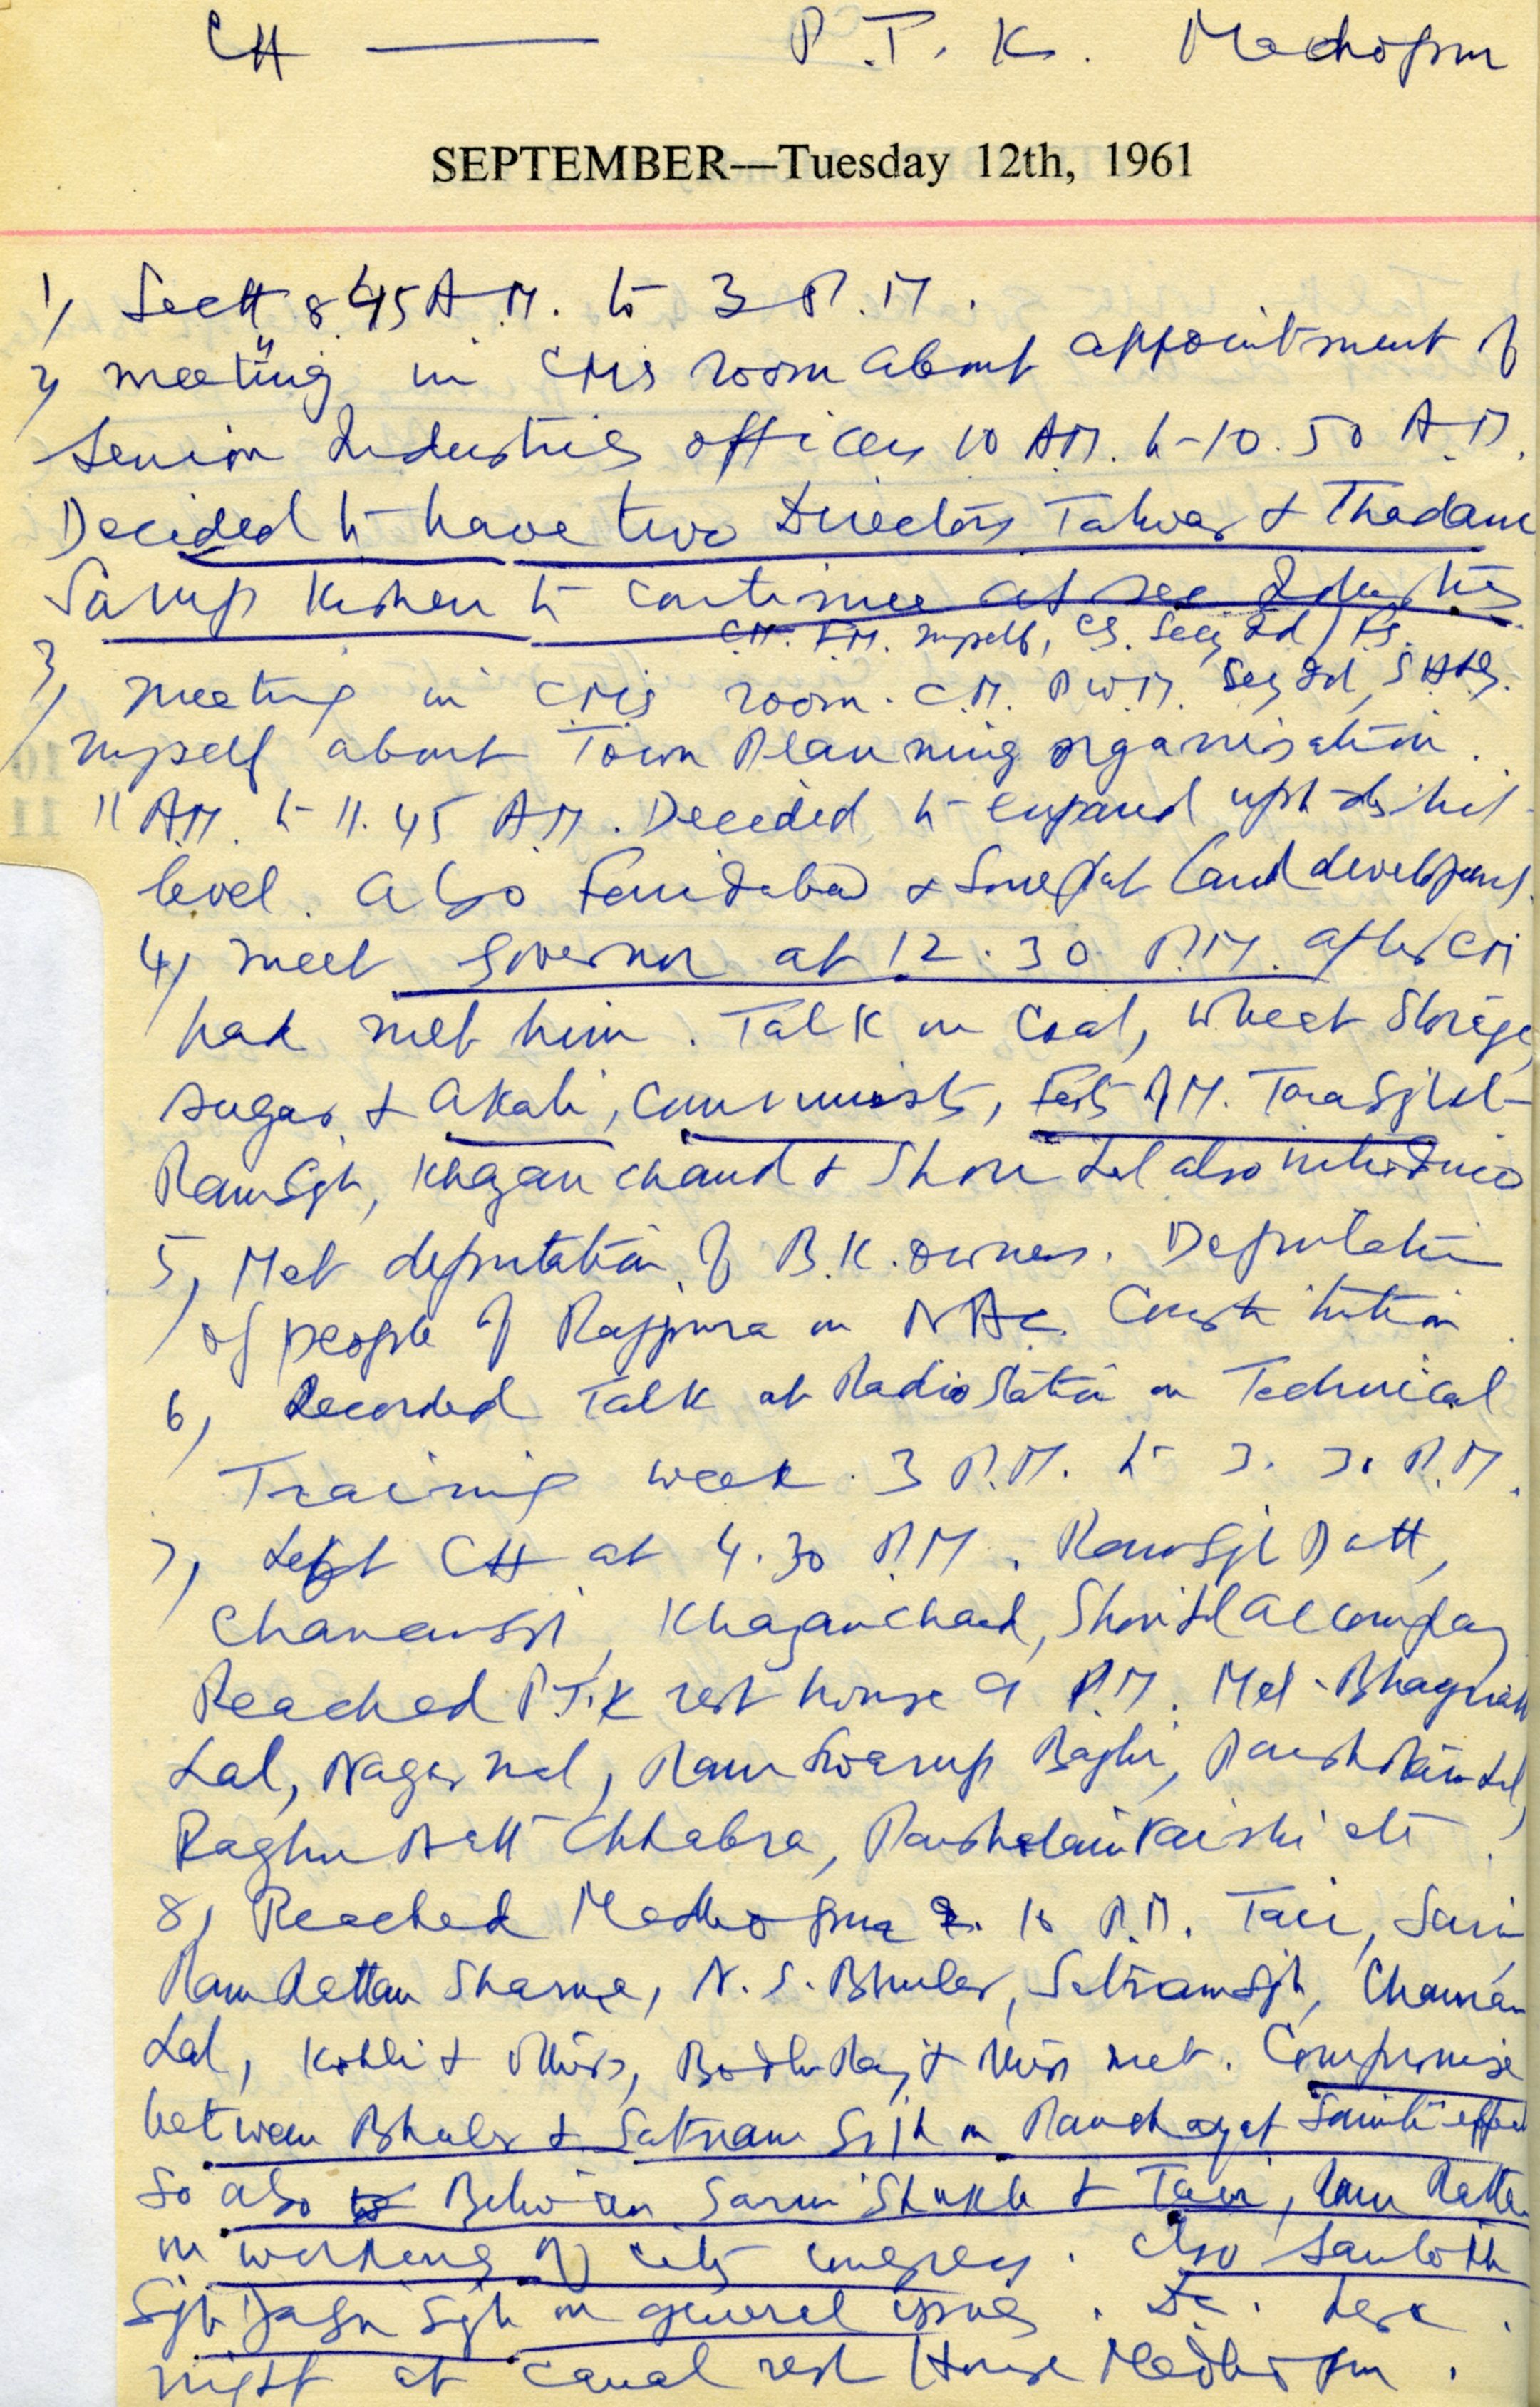 CH — P.T.K. Madhopur
SEPTEMBER—Tuesday 12th, 1961
1, Sectt 8.45 A.M. to 3 P.M.
2, meeting in CM's room about appointment of
Senior Industries officers 10 A.M. to 10.50 A.M.
Decided to have two Directors Talwar & Thadani
Sarup Kishen to continue as Sec Industries
C.M. F.M. myself, CS. Secy Ind / FS.
3, meeting in CM's room. C.M. P.W.M. Secy Ind,
myself about Town Planning organisation.
11 A.M. to 11.45 A.M. Decided to expand upto district
level. Also Faridabad & Sonepat land development.
4, meet Governor at 12.30 P.M. after CM
had met him. Talk on Coal, wheat Storage,
sugar & Akali, Communists, Fast of M. Tara Sigh
Ram Sgh, Khazan Chand & Shori Lal also
5, Met deputation of B.K. owners. Deputation
of people of Rajpura on NAC. Constitution.
6, Recorded Talk at Radio Station on Technical
Training week. 3 P.M. to 3.30 P.M.
7, Left CH at 4.30 P.M. Ram Sgh Datt,
Khazan Chand, Shori Lal accompany
Reached P.T.K rest house 9 P.M. Met Bhagwan
Lal, Ram Swarup
Raghu Datt Chhabra, etc.
8, Reached Madhopur 10 P.M. Sarin
Ram Rattan Sharma, N.S. Bhuler, Satnam Sgh, Chaman
Lal, Kohli & others, Bodh Raj & others met. Compromise
between Bhuler & Satnam Sgh on Panchayat Samiti
So also Between Sarin & Ram Rattan
on working of city congress. Also Santokh
Sgh Sgh on general issues.
night at canal rest House Madhopur.